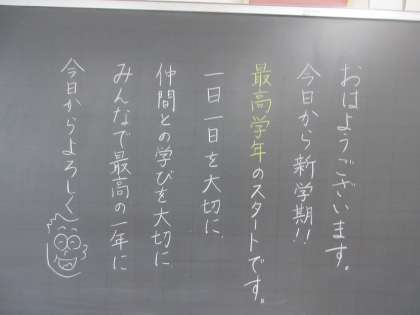 おはようございます。
今日から新学期!!
最高学年のスタートです。
一日一日を大切に
仲間との学びを大切に
みんなで最高の一年に
今日からよろしく